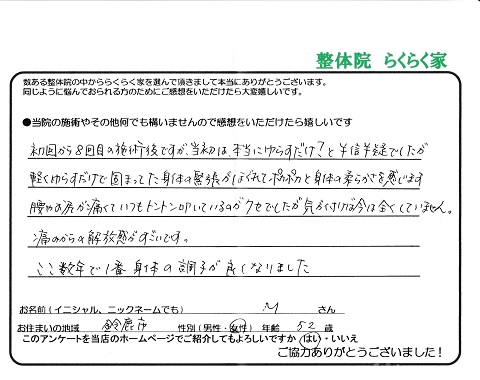 整体院 らくらく家
数ある整体院の中かららくらく家を選んで頂きまして本当にありがとうございます。
同じように悩んでおられる方のためにご感想をいただけたら大変嬉しいです。
●当院の施術やその他何でも構いませんので感想をいただけたら嬉しいです
初回から8回目の施術後ですが、当初は、本当にゆらすだけ?と半信半疑でしたが
軽くゆらすだけで固まってた身体の緊張がほぐれてポカポカと身体の柔らかさを感じます
腰や肩が痛くていつもトントン叩いているのがクセでしたが気が付けば今は全くしていません。
痛みからの解放感がすごいです。
ここ数年で1番身体の調子が良くなりました
お名前(イニシャル、ニックネームでも) M さん
お住まいの地域 鈴鹿市 性別(男性・女性) 年齢 52 歳
このアンケートを当店のホームページでご紹介してもよろしいですか はい・いいえ
ご協力ありがとうございました!